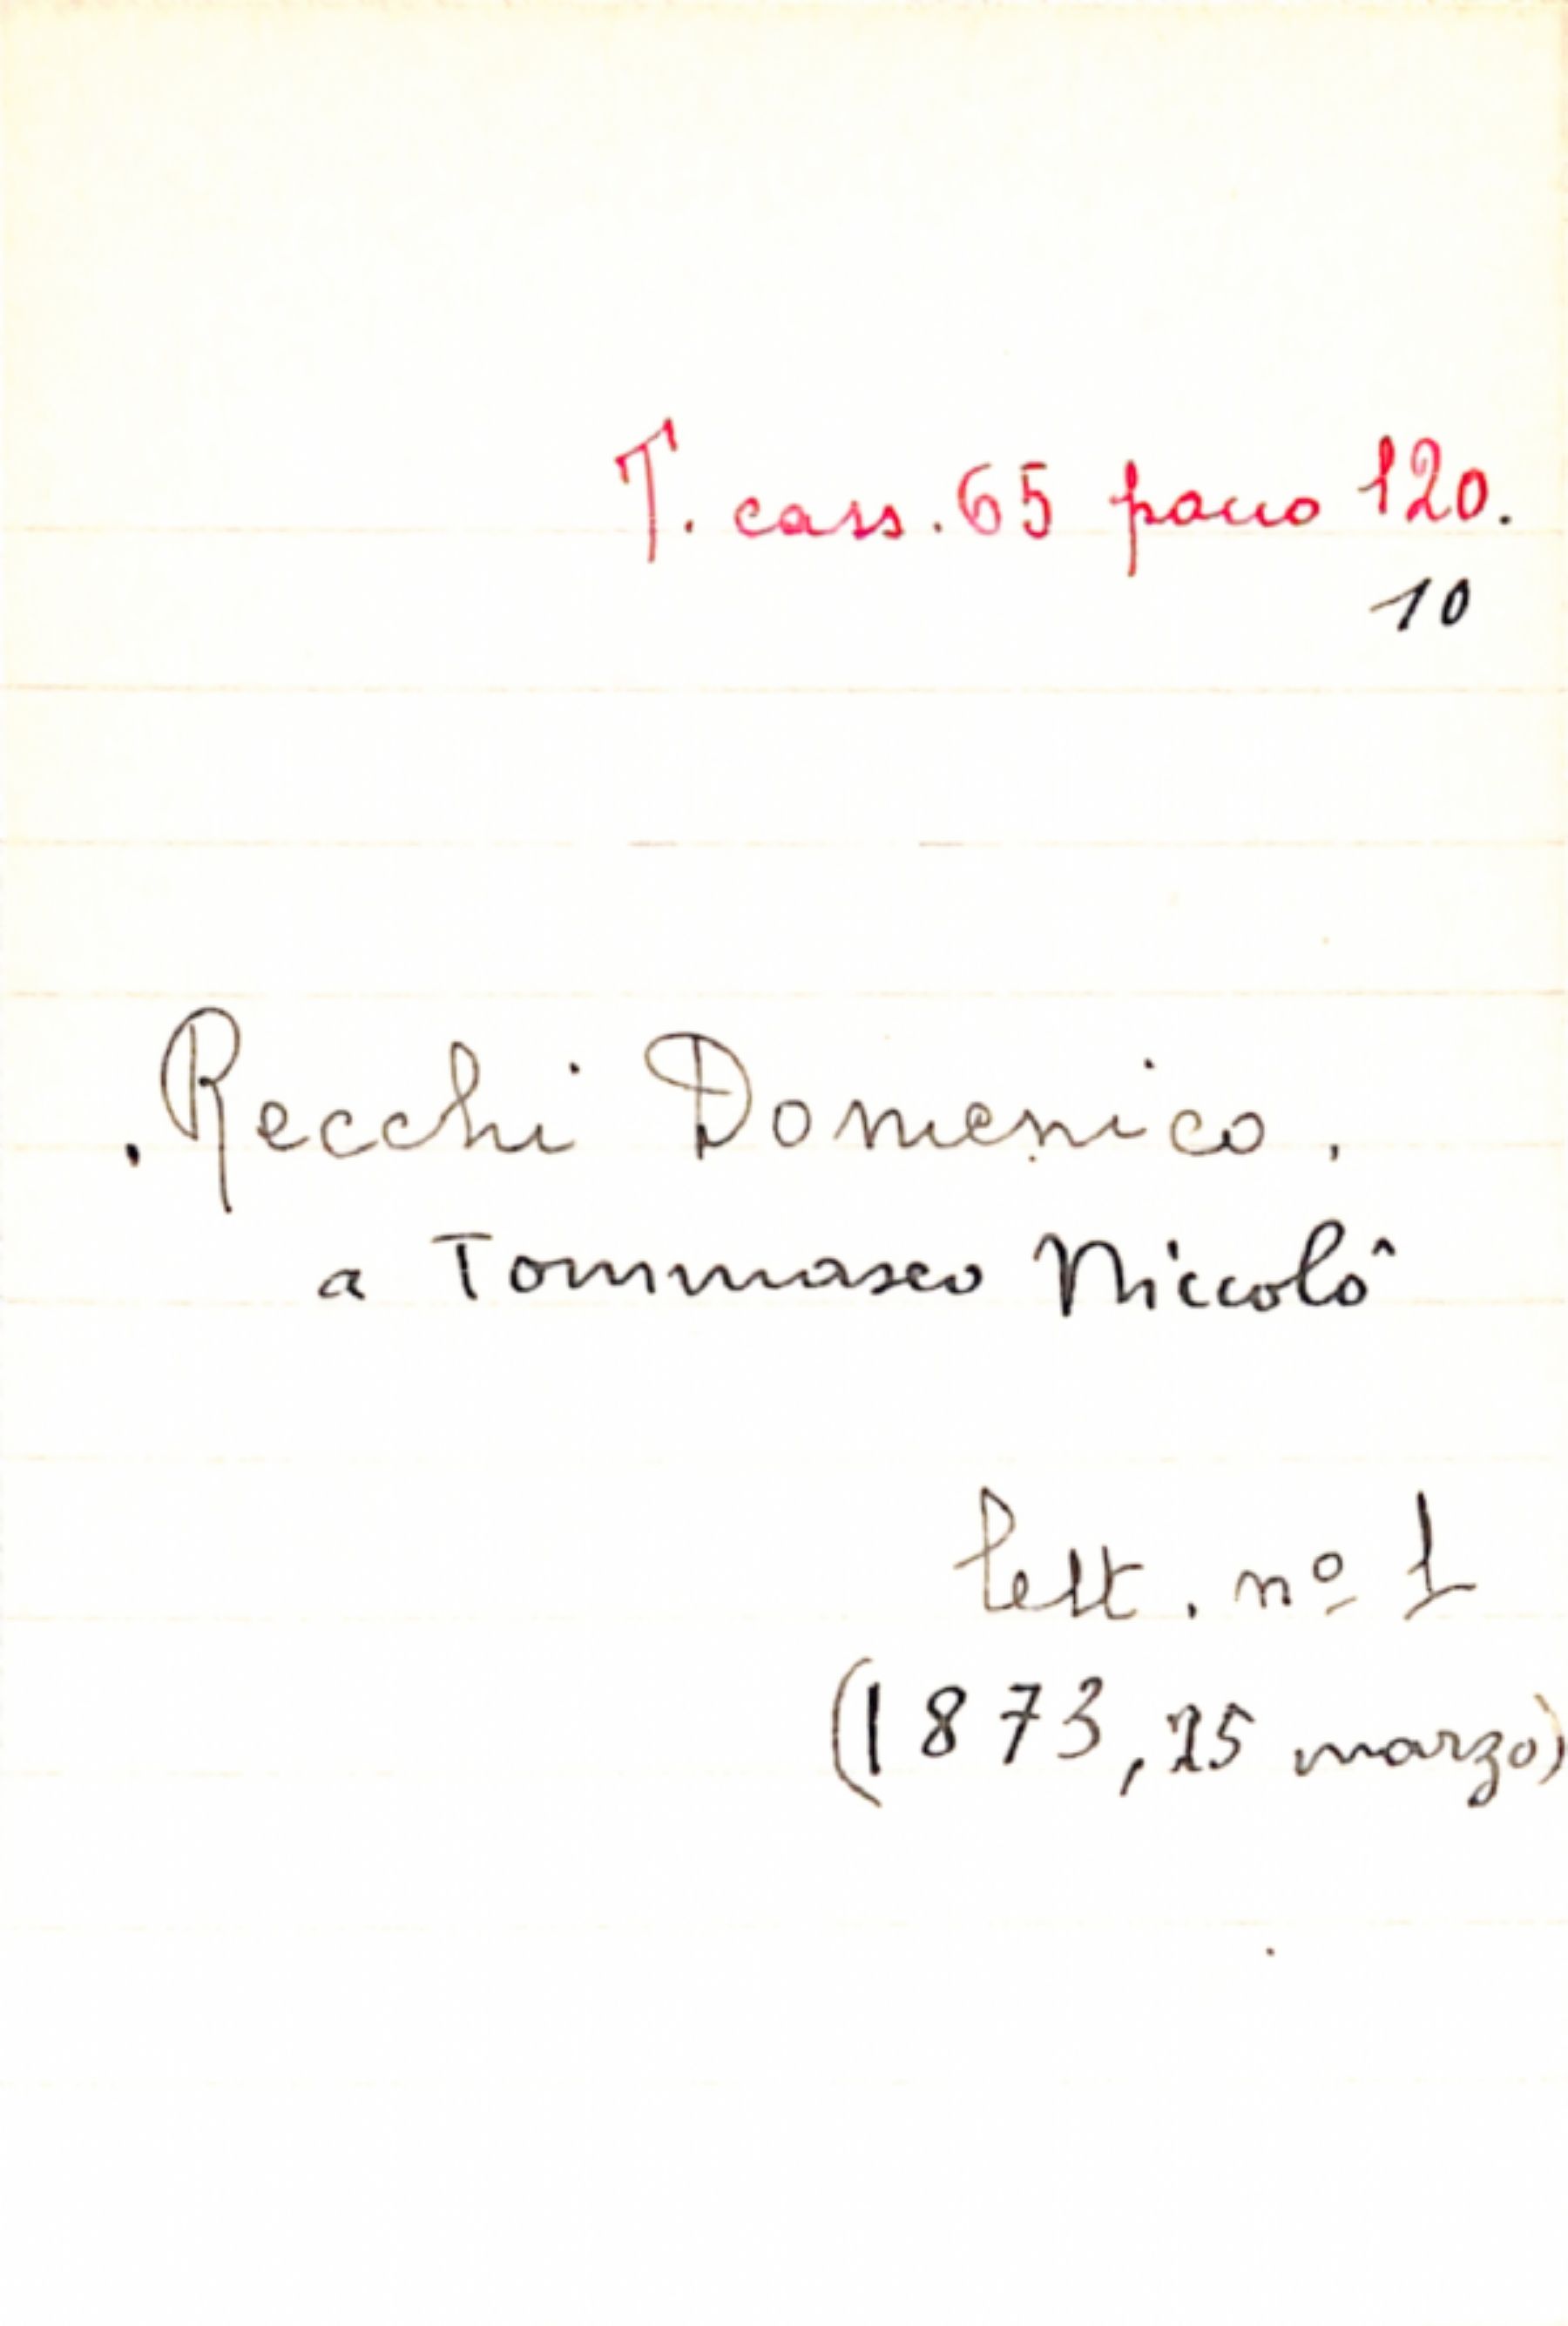 T. cass. 65 pacco 120.
10
Recchi Domenico.
a Tommaseo Niccolô
lett. nº 1
(1873, 25 marzo)